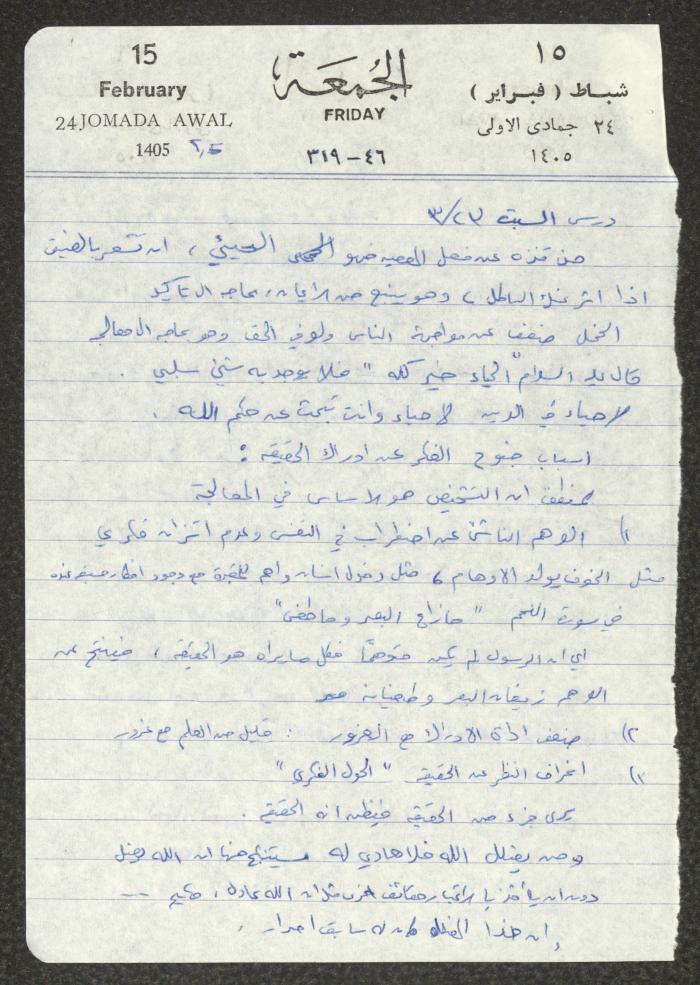 15
February
24 JOMADA AWAL
1405 ٢,٥
الجُمعَة
FRIDAY
٤٦ – ٣١٩
١٥
شباط ( فبراير )
٢٤ جمادى الاولى
١٤٠٥
درس السبت ٢٣/٣
من فعل المعصيه فهو الحيئي ، ان تشعر بالضيق
اذا اثر عنك الباطل ، وهو ينبع من الايمان ، بحاجه الى تأكيد
الخجل ضعف عن مواجهة الناس ولو في الحق وهو بحاجه الى معالجه
قال عليه السلام "الحياء خير كله " فلا يوجد به شيئ سلبي .
لا حياء في الدين لا حياء وانت تبحث عن حكم الله .
اسباب جنوح الفكر عن ادراك الحقيقه :
ان التشخيص هو الاساس في المعالجة
١) الوهم الناشئ عن اضطراب في النفس وعدم اتزان فكري
مثل الخوف يولد الاوهام ، مثل دخول انسان واهم للمقبرة مع وجود افكار عنده
في سورة النجم " ما زاغ البصر وما طغى "
اي ان الرسول لم يكن متوهمًا فكل ما يراه هو الحقيقه ، فينتج عن
الوهم زيغان البصر وطغيانه
٢) ضعف اداة الادراك مع الغرور : قليل من العلم مع غرور
٣) انحراف النظر عن الحقيقه " الحول الفكري "
يرى جزء من الحقيقه فيظن انه الحقيقه .
ومن يضلل الله فلا هادي له يستنتج منها ان الله يضل
دون ان يأخذ بالاعتبار حقائق اخرى مثل ان الله عادل ، حكيم ...
ان هذا الضلال كان له سابق اصرار .